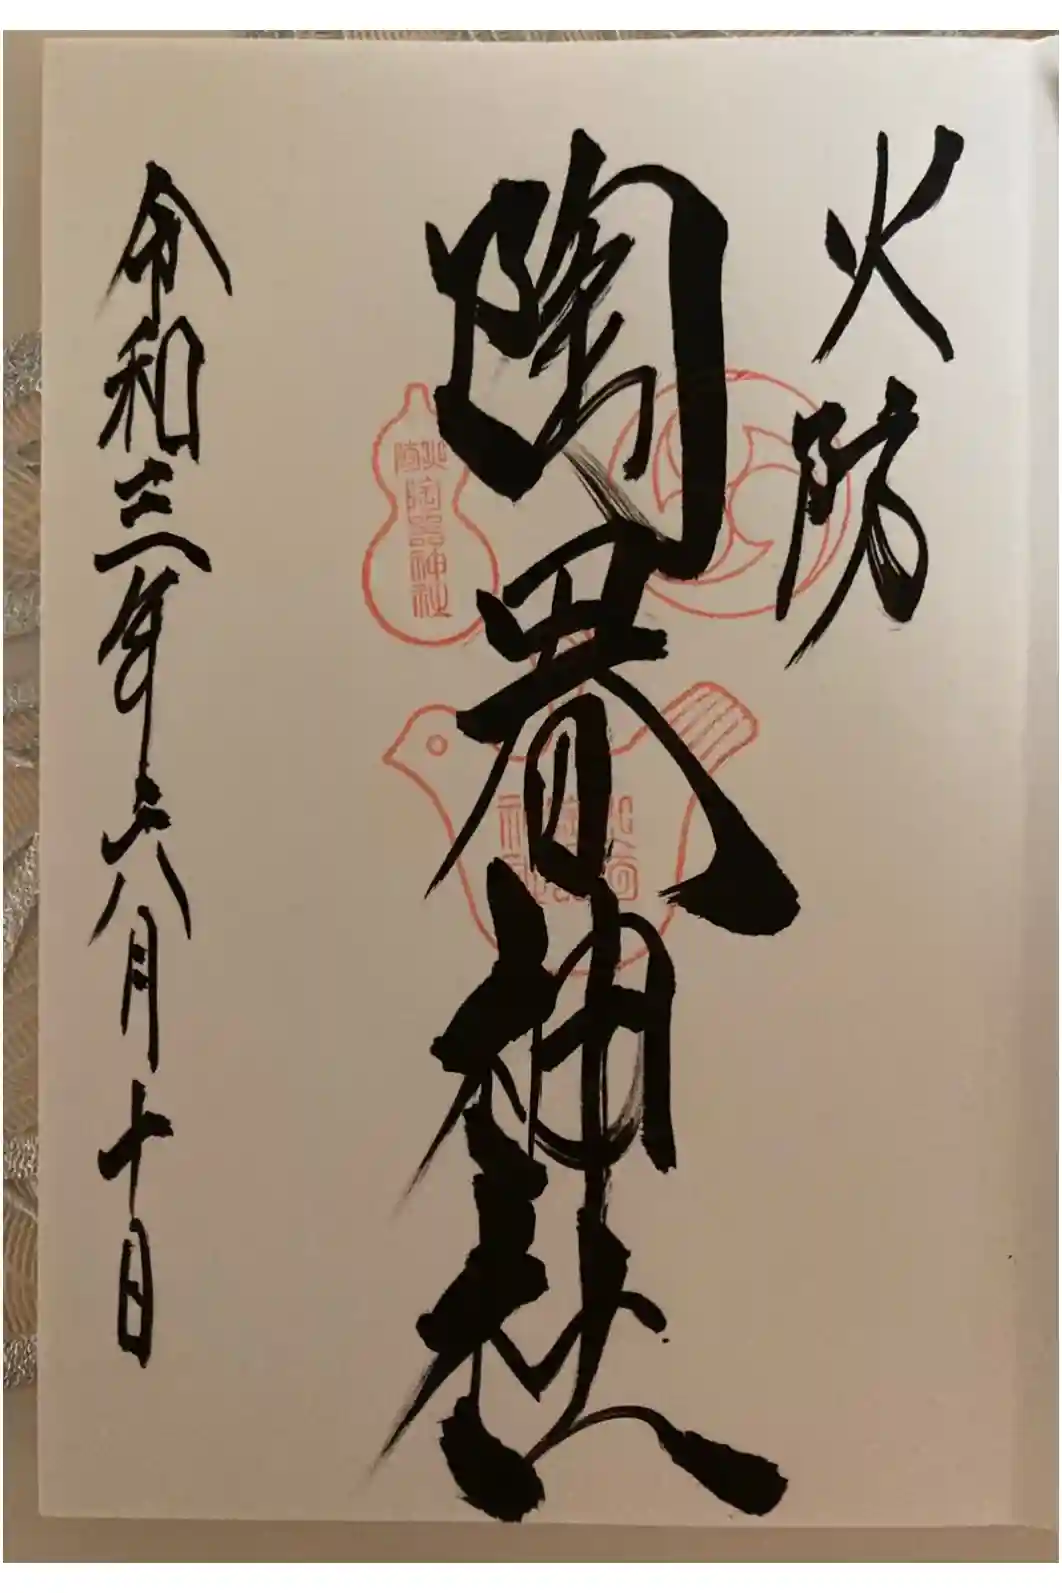 火防
陶器神社
火防
陶器神社
令和三年六月十日